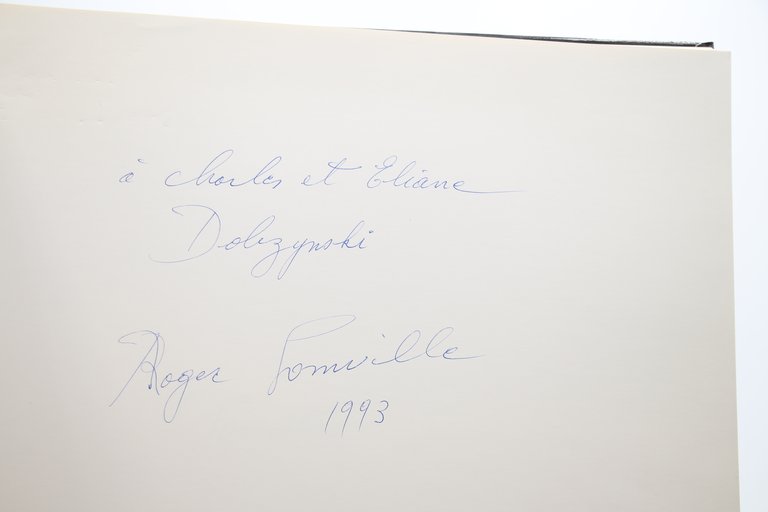 à Charles et Eliane
Dobzynski
Roger Somville
1993